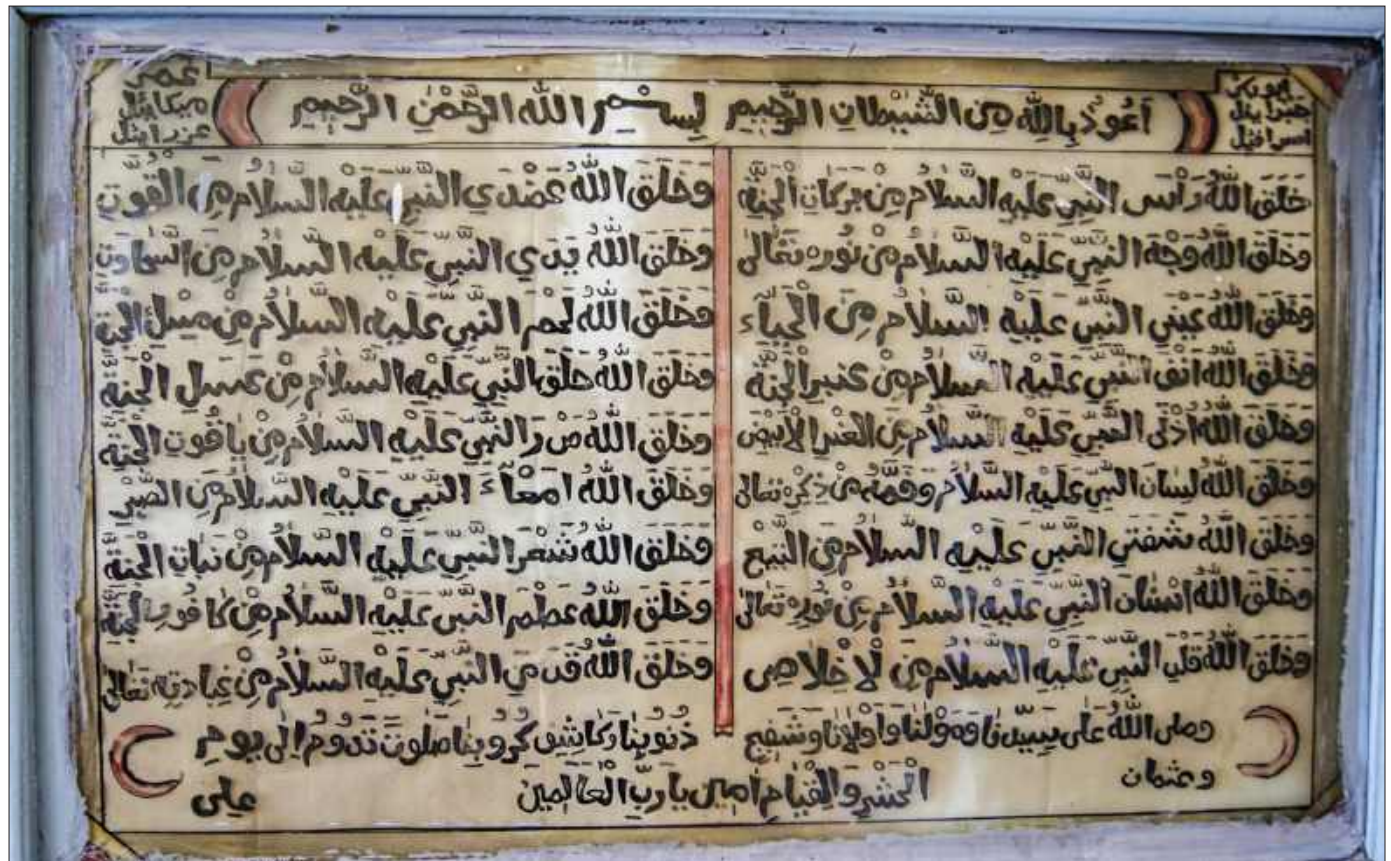 ابوبكر
جبرائيل
اسرافيل
اَعُوذُ بِاللّٰهِ مِنَ الشَّيْطَانِ الرَّجِيمِ بِسْمِ اللّٰهِ الرَّحْمٰنِ الرَّحِيمِ
عمر
ميكائيل
عزرائيل
خَلَقَ اللّٰهُ رَأْسَ النَّبِيِّ عَلَيْهِ السَّلَامُ مِنْ بَرَكَاتِ الْجَنَّةِ
وَخَلَقَ اللّٰهُ وَجْهَ النَّبِيِّ عَلَيْهِ السَّلَامُ مِنْ نُورِهِ تَعَالَى
وَخَلَقَ اللّٰهُ عَيْنَيِ النَّبِيِّ عَلَيْهِ السَّلَامُ مِنَ الْحَيَاءِ
وَخَلَقَ اللّٰهُ اَنْفَ النَّبِيِّ عَلَيْهِ السَّلَامُ مِنْ عَنْبَرِ الْجَنَّةِ
وَخَلَقَ اللّٰهُ اُذْنَيِ النَّبِيِّ عَلَيْهِ السَّلَامُ مِنَ الْعَنْبَرِ الْاَبْيَضِ
وَخَلَقَ اللّٰهُ لِسَانَ النَّبِيِّ عَلَيْهِ السَّلَامُ وَفَمَّهُ مِنْ ذِكْرِهِ تَعَالَى
وَخَلَقَ اللّٰهُ شَفَتَيِ النَّبِيِّ عَلَيْهِ السَّلَامُ مِنَ
وَخَلَقَ اللّٰهُ اَسْنَانَ النَّبِيِّ عَلَيْهِ السَّلَامُ مِنْ نُورِهِ تَعَالَى
وَخَلَقَ اللّٰهُ قَلْبَ النَّبِيِّ عَلَيْهِ السَّلَامُ مِنَ لْاِخْلَاصِ
وَخَلَقَ اللّٰهُ عَضُدَيِ النَّبِيِّ عَلَيْهِ السَّلَامُ مِنَ الْقُوَّتِ
وَخَلَقَ اللّٰهُ يَدَيِ النَّبِيِّ عَلَيْهِ السَّلَامُ مِنَ السَّخَاوَتِ
وَخَلَقَ اللّٰهُ لَحْمَ النَّبِيِّ عَلَيْهِ السَّلَامُ مِنْ مِسْكِ الْجَنَّةِ
وَخَلَقَ اللّٰهُ حَلْقَ النَّبِيِّ عَلَيْهِ السَّلَامُ مِنْ عَسَلِ الْجَنَّةِ
وَخَلَقَ اللّٰهُ صَدْرَ النَّبِيِّ عَلَيْهِ السَّلَامُ مِنْ يَاقُوتِ الْجَنَّةِ
وَخَلَقَ اللّٰهُ اَمْعَآءَ النَّبِيِّ عَلَيْهِ السَّلَامُ مِنَ الصَّبْرِ
وَخَلَقَ اللّٰهُ شَعْرَ النَّبِيِّ عَلَيْهِ السَّلَامُ مِنْ نَبَاتِ الْجَنَّةِ
وَخَلَقَ اللّٰهُ عَظْمَ النَّبِيِّ عَلَيْهِ السَّلَامُ مِنْ كَافُورِ الْجَنَّةِ
وَخَلَقَ اللّٰهُ قَدَمَيِ النَّبِيِّ عَلَيْهِ السَّلَامُ مِنْ عِبَادَتِهِ تَعَالَى
وصلى اللّٰه على سيدنا ومولنا واولانا وشفيع ذنوبنا وكاشف كروبنا صلوت تدوم الى يوم
وعثمان
الحشر والقيام امين يا رب العالمين
على